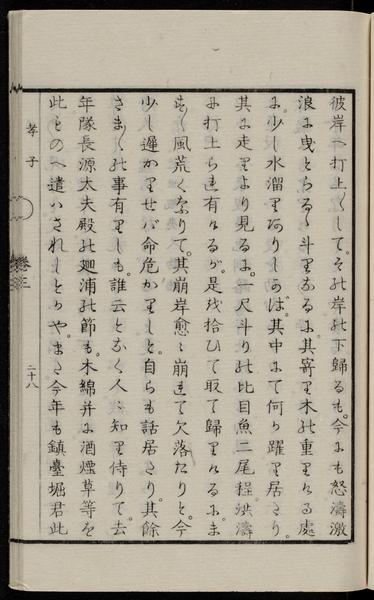 彼岸へ打上くして。その岸の下歸るも。今にも怒濤激
浪に曳とらるゝ斗りなるに其寄り木の重りける處
に。少し水溜りありしかば。其中にて何か躍り居たり。
其に走りより見るに。一尺斗りの比目魚二尾程。洪濤
に打上られ有けるが。是を拾ひて取て歸りけるにま
すゝ風荒くなりて。其崩岸愈々崩れて欠落たりと。今
少し遲かりせば命危かりしと。自らも話居たり。其餘
さまゝの事有りしも。誰云となく人々知り侍りて。去
年隊長源太夫殿の廻浦の節も。木綿并に酒煙草等を
此ものへ遣はされしとかや。まさ今年も鎮臺堀君此
孝子
卷三
二十八